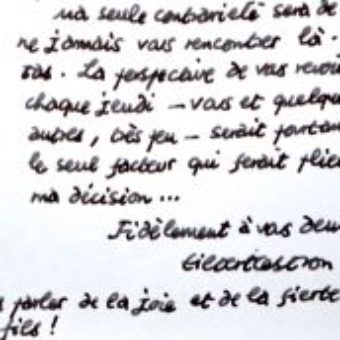 ma seule contrariété sera de
ne jamais vous rencontrer là-
bas. La perspective de vous revoir
chaque jeudi – vous et quelque
autres, très peu – serait pourtan
le seul facteur qui ferait plier
ma décision ...
Fidèlement à vous deu
parler de la joie et de la fierté
fils !